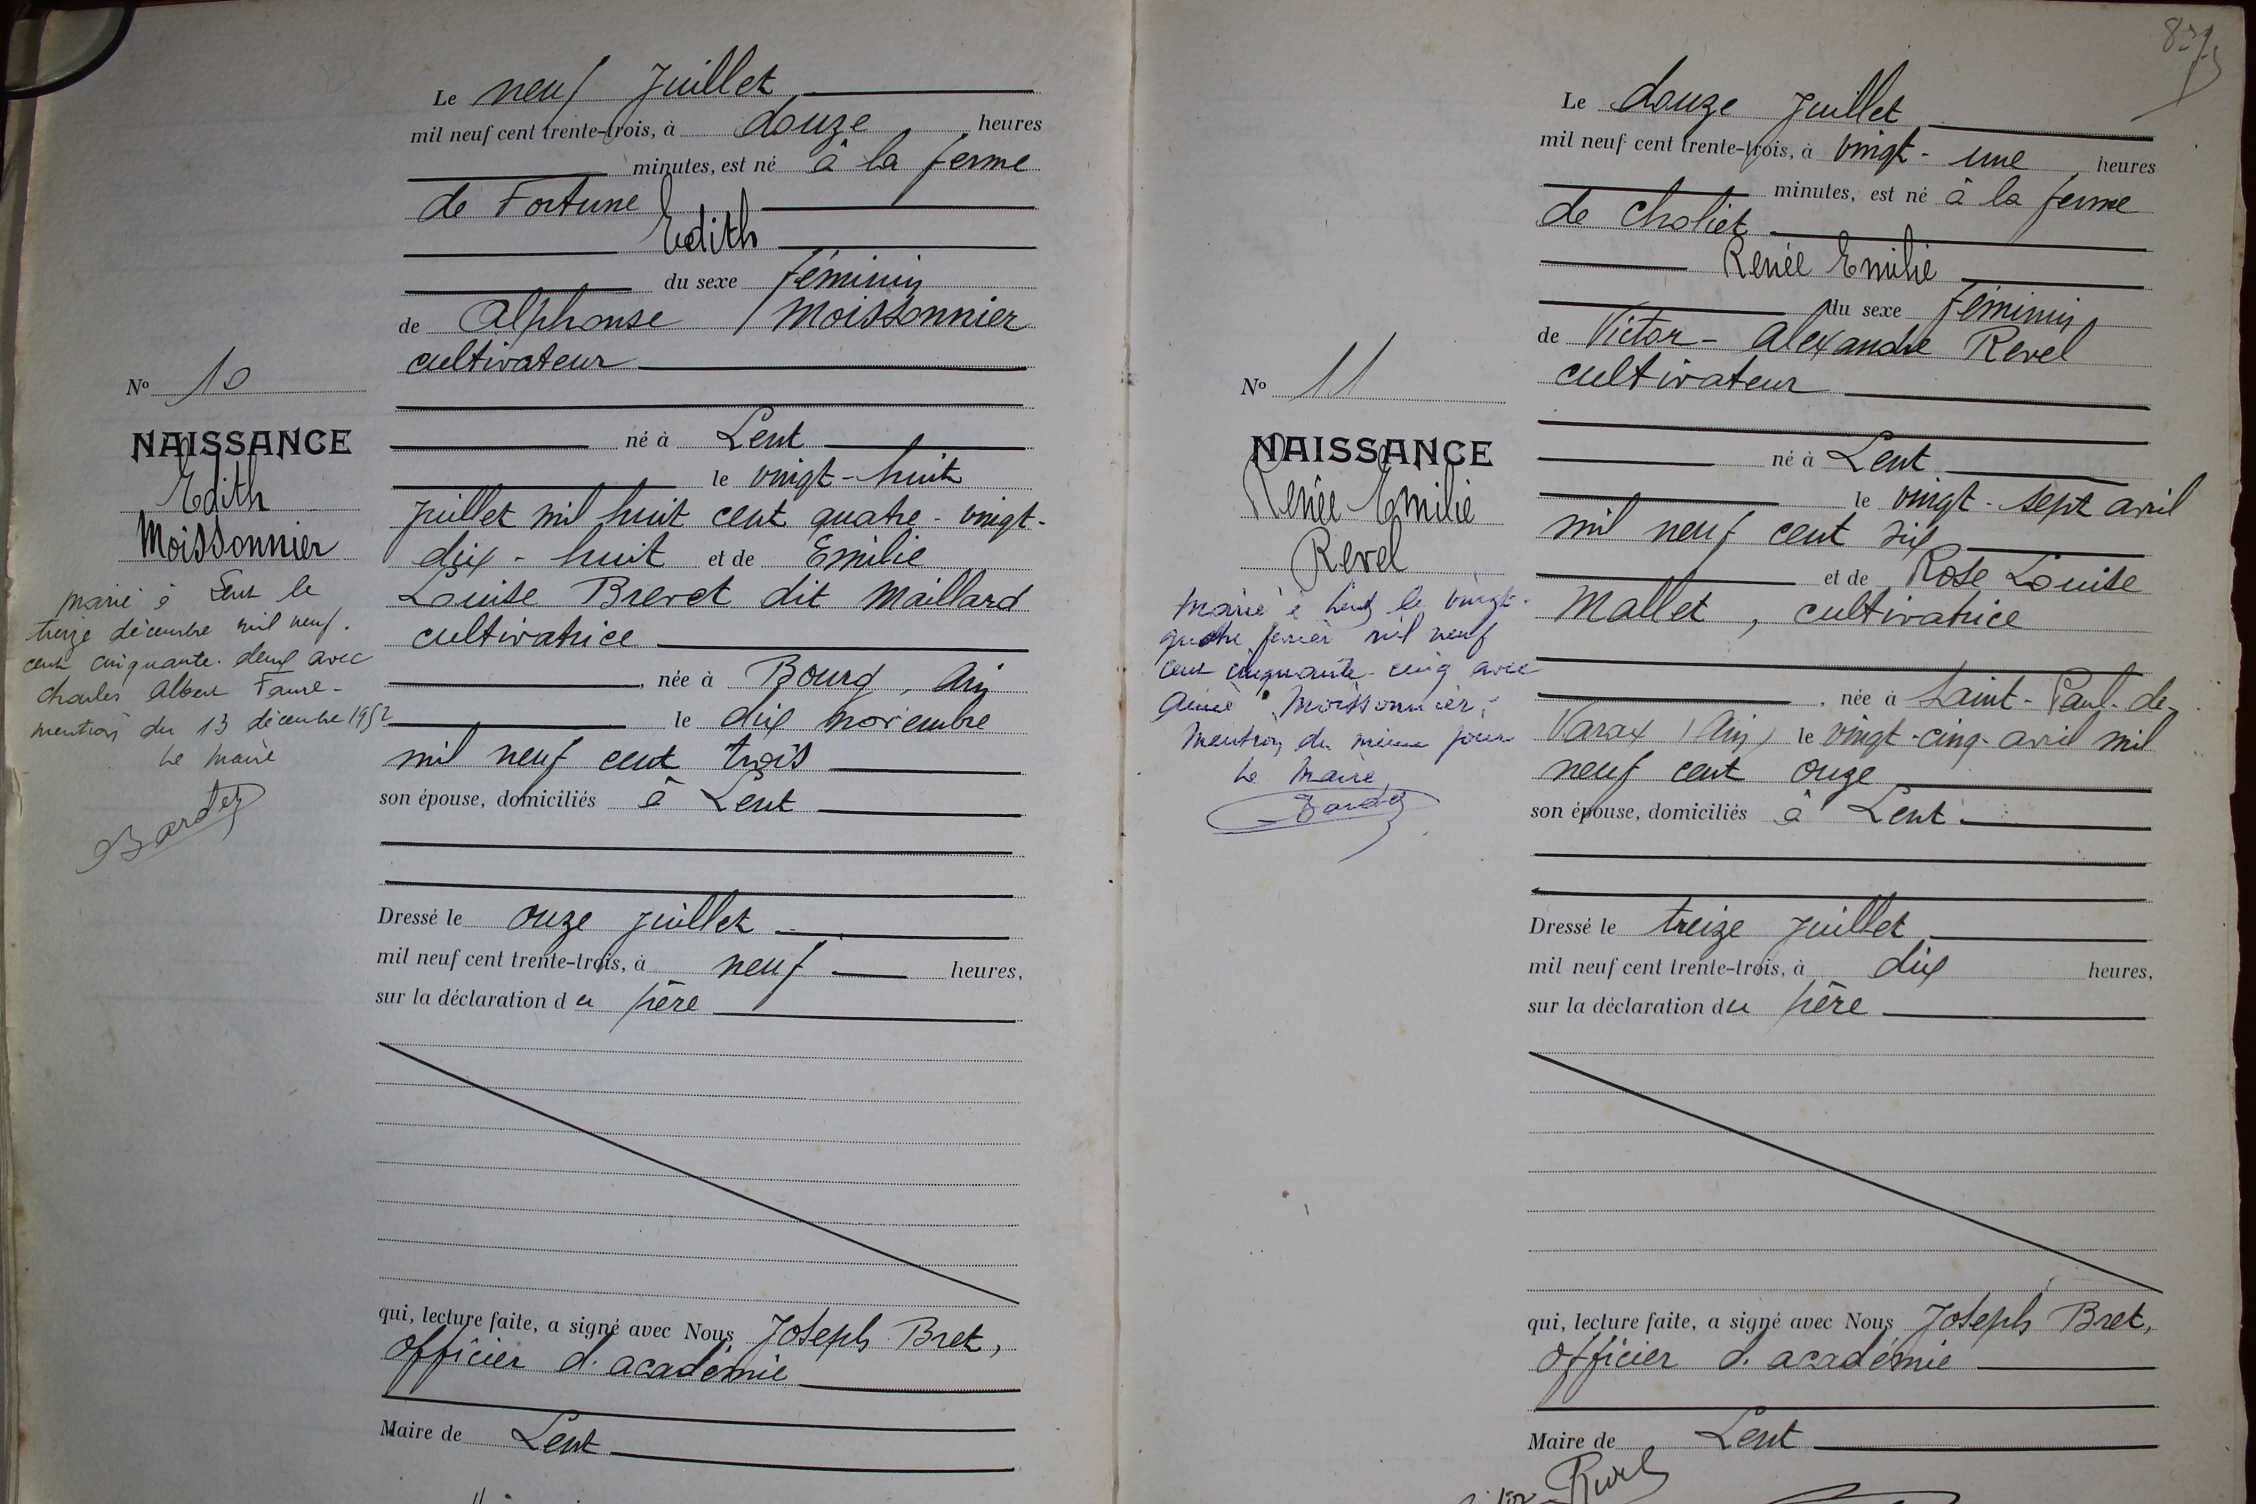 Le neuf Juillet
mil neuf cent trente-trois, à douze heures
minutes, est né à la ferme
de Fortune
Edith
du sexe féminin
de Alphonse Moissonnier
cultivateur
né à Lent
le vingt-huit
juillet mil huit cent quatre-vingt-
dix-huit et de Emilie
Louise Brevet dit Maillard
cultivatrice
née à Bourg, Ain
le dix novembre
mil neuf cent trois
son épouse, domiciliés à Lent
Dressé le onze juillet
mil neuf cent trente-trois, à neuf heures,
sur la déclaration du père
qui, lecture faite, a signé avec Nous Joseph Bret,
officier d'académie
Maire de Lent
No 10
NAISSANCE
Edith
Moissonnier
Marié à Lent le
treize décembre mil neuf
cent cinquante-deux avec
Charles Albert Faure-
mention du 13 décembre 1952
Le Maire
Le douze Juillet
mil neuf cent trente-trois, à vingt-une heures
minutes, est né à la ferme
de Choliet
Renée Emilie
du sexe féminin
de Victor-Alexandre Revel
cultivateur
né à Lent
le vingt-sept avril
mil neuf cent six
et de Rose Louise
Mallet, cultivatrice
née à Saint-Paul-de-
Varax (Ain) le vingt-cinq avril mil
neuf cent onze
son épouse, domiciliés à Lent
Dressé le treize juillet
mil neuf cent trente-trois, à dix heures,
sur la déclaration du père
qui, lecture faite, a signé avec Nous Joseph Bret,
officier d'académie
Maire de Lent
Revel
No 11
NAISSANCE
Renée Emilie
Revel
Marié à Lent le vingt-
quatre février mil neuf
cent cinquante-cinq avec
Aimé Moissonnier.
Mention du même jour
Le Maire